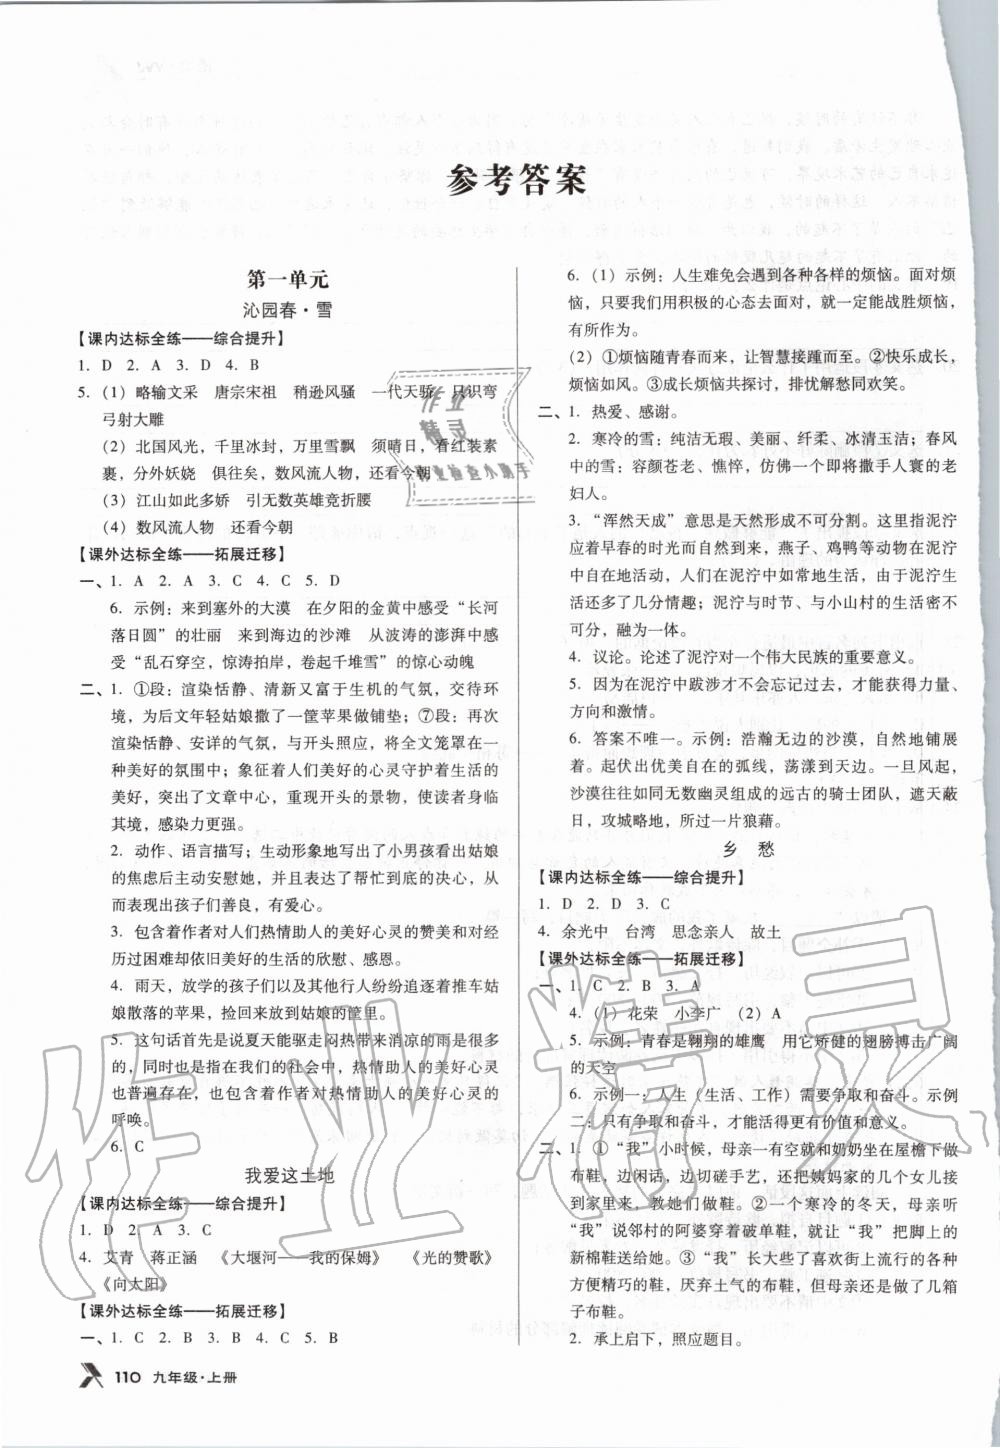 参考答案
第一单元
沁园春·雪
【课内达标全练——综合提升】
1. D 2. A 3. D 4. B
5. (1) 略输文采 唐宗宋祖 稍逊风骚 一代天骄 只识弯
弓射大雕
(2) 北国风光，千里冰封，万里雪飘 须晴日，看红装素
裹，分外妖娆 俱往矣，数风流人物，还看今朝
(3) 江山如此多娇 引无数英雄竞折腰
(4) 数风流人物 还看今朝
【课外达标全练——拓展迁移】
一、1. A 2. A 3. C 4. C 5. D
6. 示例：来到塞外的大漠 在夕阳的金黄中感受“长河
落日圆”的壮丽 来到海边的沙滩 从波涛的澎湃中感
受“乱石穿空，惊涛拍岸，卷起千堆雪”的惊心动魄
二、1. ①段：渲染恬静、清新又富于生机的气氛，交待环
境，为后文年轻姑娘撒了一筐苹果做铺垫；⑦段：再次
渲染恬静、安详的气氛，与开头照应，将全文笼罩在一
种美好的氛围中；象征着人们美好的心灵守护着生活的
美好，突出了文章中心，重现开头的景物，使读者身临
其境，感染力更强。
2. 动作、语言描写；生动形象地写出了小男孩看出姑娘
的焦虑后主动安慰她，并表达了帮忙到底的决心，由此
表现出孩子们善良、有爱心。
3. 包含着作者对人们热情助人的美好心灵的赞美和对经
历过苦难却依旧美好的生活的欣慰、感恩。
4. 雨天，放学的孩子们以及其他行人纷纷追逐着推车姑
娘散落的苹果，捡回来放到姑娘的筐里。
5. 这句话首先是说夏天能驱走闷热带来清凉的雨是很多
的，同时也是指在我们的社会中，热情助人的美好心灵
也普遍存在，也包含着作者对热情助人的美好心灵的
呼唤。
6. C
我爱这土地
【课内达标全练——综合提升】
1. D 2. A 3. C
4. 艾青 蒋正涵 《大堰河——我的保姆》 《光的赞歌》
《向太阳》
【课外达标全练——拓展迁移】
一、1. C 2. B 3. C 4. D 5. B
110 九年级·上册
6. (1) 示例：人生难免会遇到各种各样的烦恼。面对烦
恼，只要我们用积极的心态去面对，就一定能战胜烦恼，
有所作为。
(2) ①烦恼随青春而来，让智慧接踵而至。②快乐成长，
烦恼如风。③成长烦恼共探讨，排忧解愁同欢笑。
二、1. 热爱、感谢。
2. 寒冷的雪：纯洁无瑕、美丽、纤柔、冰清玉洁；春风
中的雪：容颜苍老、憔悴，仿佛一个即将撒手人寰的老
妇人。
3. “浑然天成”意思是天然形成不可分割。这里指泥泞
应着早春的时光而自然到来，燕子、鸡鸭等动物在泥泞
中自在地活动，人们在泥泞中如常地生活，由泥泞生
活还多了几分情趣；泥泞与时节、与小山村的生活密不
可分，融为一体。
4. 议论。论述了泥泞对一个伟大民族的重要意义。
5. 因为在泥泞中跋涉才不会忘记过去，才能获得力量、
方向和激情。
6. 答案不唯一。示例：浩瀚无边的沙漠，自然地铺展
着。起伏出优美自在的弧线，荡漾到天边。一旦风起，
沙漠往往如无数幽灵组成的远古的骑士团队，遮天蔽
日，攻城略地，所过一片狼藉。
乡 愁
【课内达标全练——综合提升】
1. D 2. D 3. C
4. 余光中 台湾 思念亲人 故土
【课外达标全练——拓展迁移】
一、1. C 2. B 3. A
4. (1) 花荣 小李广 (2) A
5. 示例：青春是翱翔的雄鹰 用它矫健的翅膀搏击广阔
的天空
6. 示例一：人生（生活、工作）需要争取和奋斗。示例
二：只有争取和奋斗，才能活得更有价值和意义。
二、1. ①“我”小时候，母亲一有空就和奶奶坐在屋檐下做
布鞋，边闲话，边切磋手艺，还把姨妈家的几个女儿接
到家里来，教她们做鞋。②一个寒冷的冬天，母亲听
“我”说邻村的阿婆穿着破单鞋，就让“我”把脚上的
新棉鞋送给她。③“我”长大些了喜欢街上流行的各种
方便精巧的鞋，厌弃土气的布鞋，但母亲还是做了几箱
子布鞋。
2. 承上启下，照应题目。
作业
精灵
作业检查小助手
作业精灵